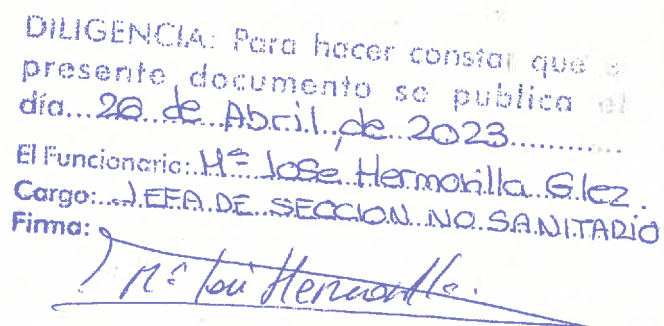 DILIGENCIA: Para hacer constar que e
presente documento se publica el
día...26 de Abril de 2023.........
El Funcionario: Mª Jose Hermosilla Glez.
Cargo:...JEFA DE SECCION NO SANITARIO
Firma:
Mª José Hermosilla.